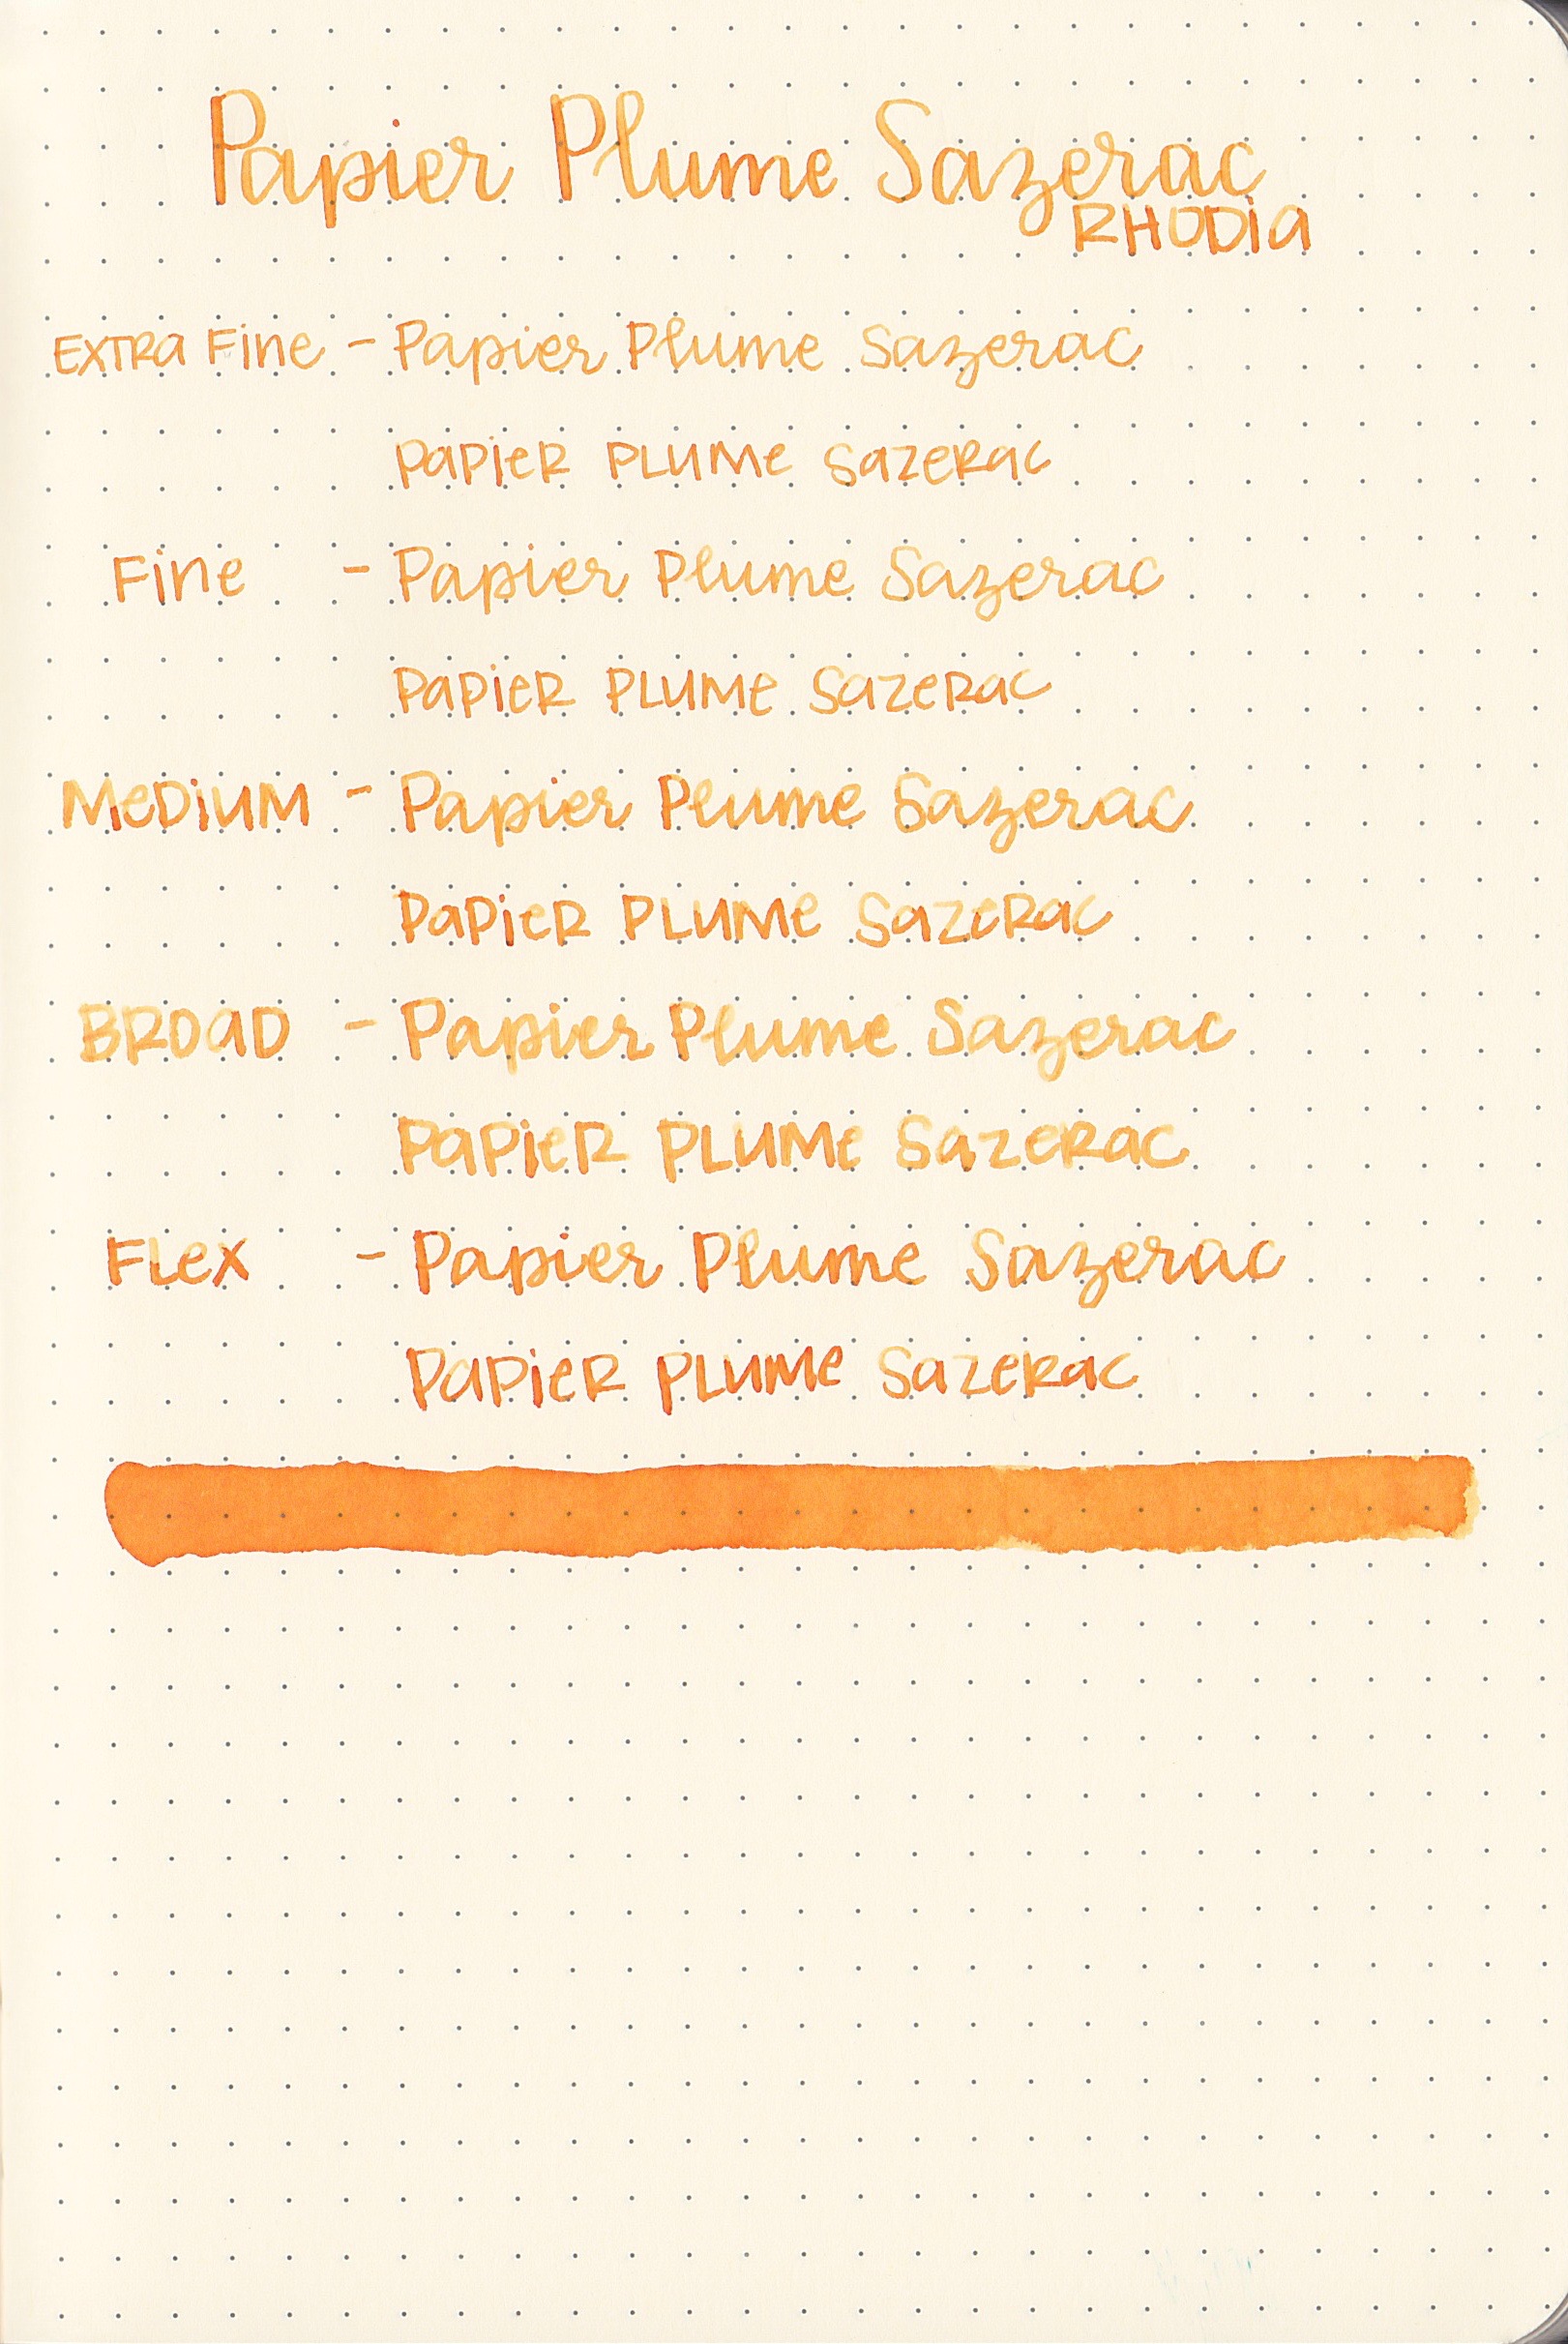 Papier Plume Sazerac
RHODIA
EXTRA FINE - Papier Plume Sazerac
PAPIER PLUME SAZERAC
FINE - Papier Plume Sazerac
PAPIER PLUME SAZERAC
MEDIUM - Papier Plume Sazerac
PAPIER PLUME SAZERAC
BROAD - Papier Plume Sazerac
PAPIER PLUME SAZERAC
FLEX - Papier Plume Sazerac
PAPIER PLUME SAZERAC